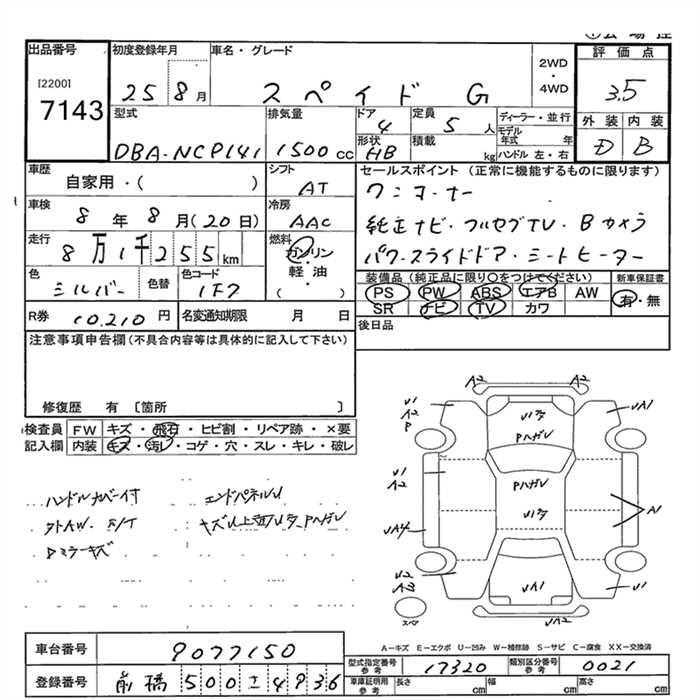 出品番号 初度登録年月 車名・グレード 評価点
[2200]
7143
25 8月 スペイド G 2WD・4WD 3.5
外装 内装
D B
型式 排気量 ドア 定員 ディーラー・並行
DBA-NCP141 1500cc 4 5人 モデル年式 年
形状 積載
HB kg ハンドル 左・右
車歴 シフト セールスポイント(正常に機能するものに限ります)
自家用・( ) AT ワンオーナー
車検 冷房
8年8月(20日) AAC 純正ナビ・フルセグTV・Bカメラ
走行 燃料
8万1千255km ガソリン パワースライドドア・シートヒーター
軽油
( )
色 色替 色コード
シルバー 1F7
装備品(純正品に限り○をつけてください) 新車保証書
PS PW ABS エアB AW 有・無
SR ナビ TV カワ
R券 10,210円 名変通知期限 月 日
後日品
注意事項申告欄(不具合内容等は具体的に記入して下さい)
修復歴 有〔箇所 〕
検査員記入欄 FW キズ・飛石・ヒビ割・リペア跡・×要
内装 キズ・汚レ・コゲ・穴・スレ・キレ・破レ
ハンドルカバー付 エンドパネルU
外AW.
Dミラーキズ
A2 A2
U1 A2 P
U1タ Pハガレ
UA1
U1 A2
Pハガレ
U1タ
A1
UA4
U2 A3
UA1
U1
スペア
UA2
A-キズ E-エクボ U-凹み W-補修跡 S-サビ C-腐食 XX-交換済
車台番号 9077150
型式指定番号 参考 17320 類別区分番号 参考 0021
登録番号 前橋500さ4936
車庫証明用 参考 長さ cm 幅 cm 高さ cm